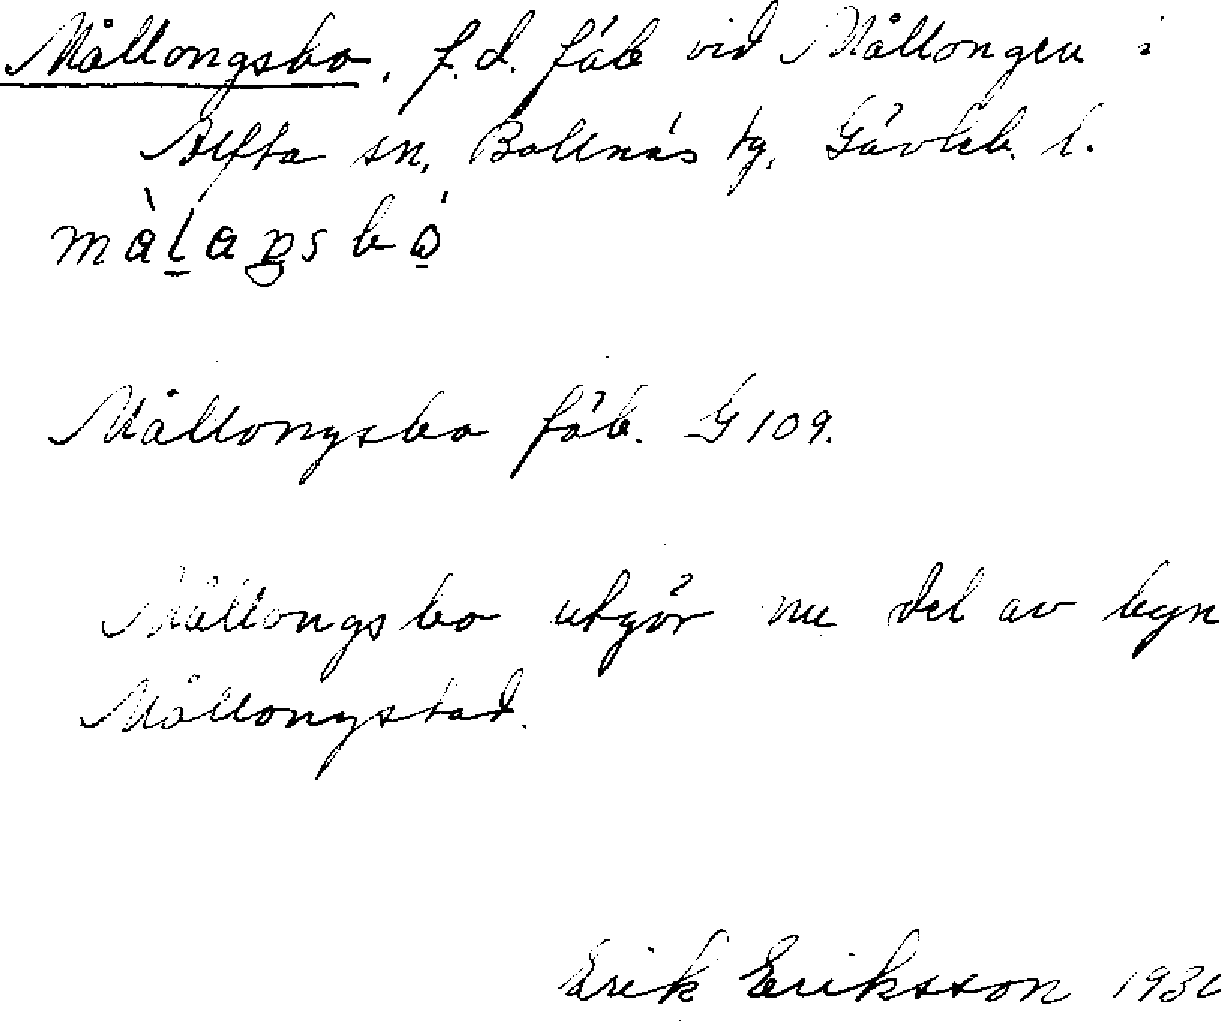 Mållongsbo, f.d. fäb vid Mållongen i
Alfta sn, Bollnäs tg, Gävleb. l.
Mållongsbo fäb. G 109.
Mållongsbo utgör nu del av byn
Mållongstad.
Erik Eriksson